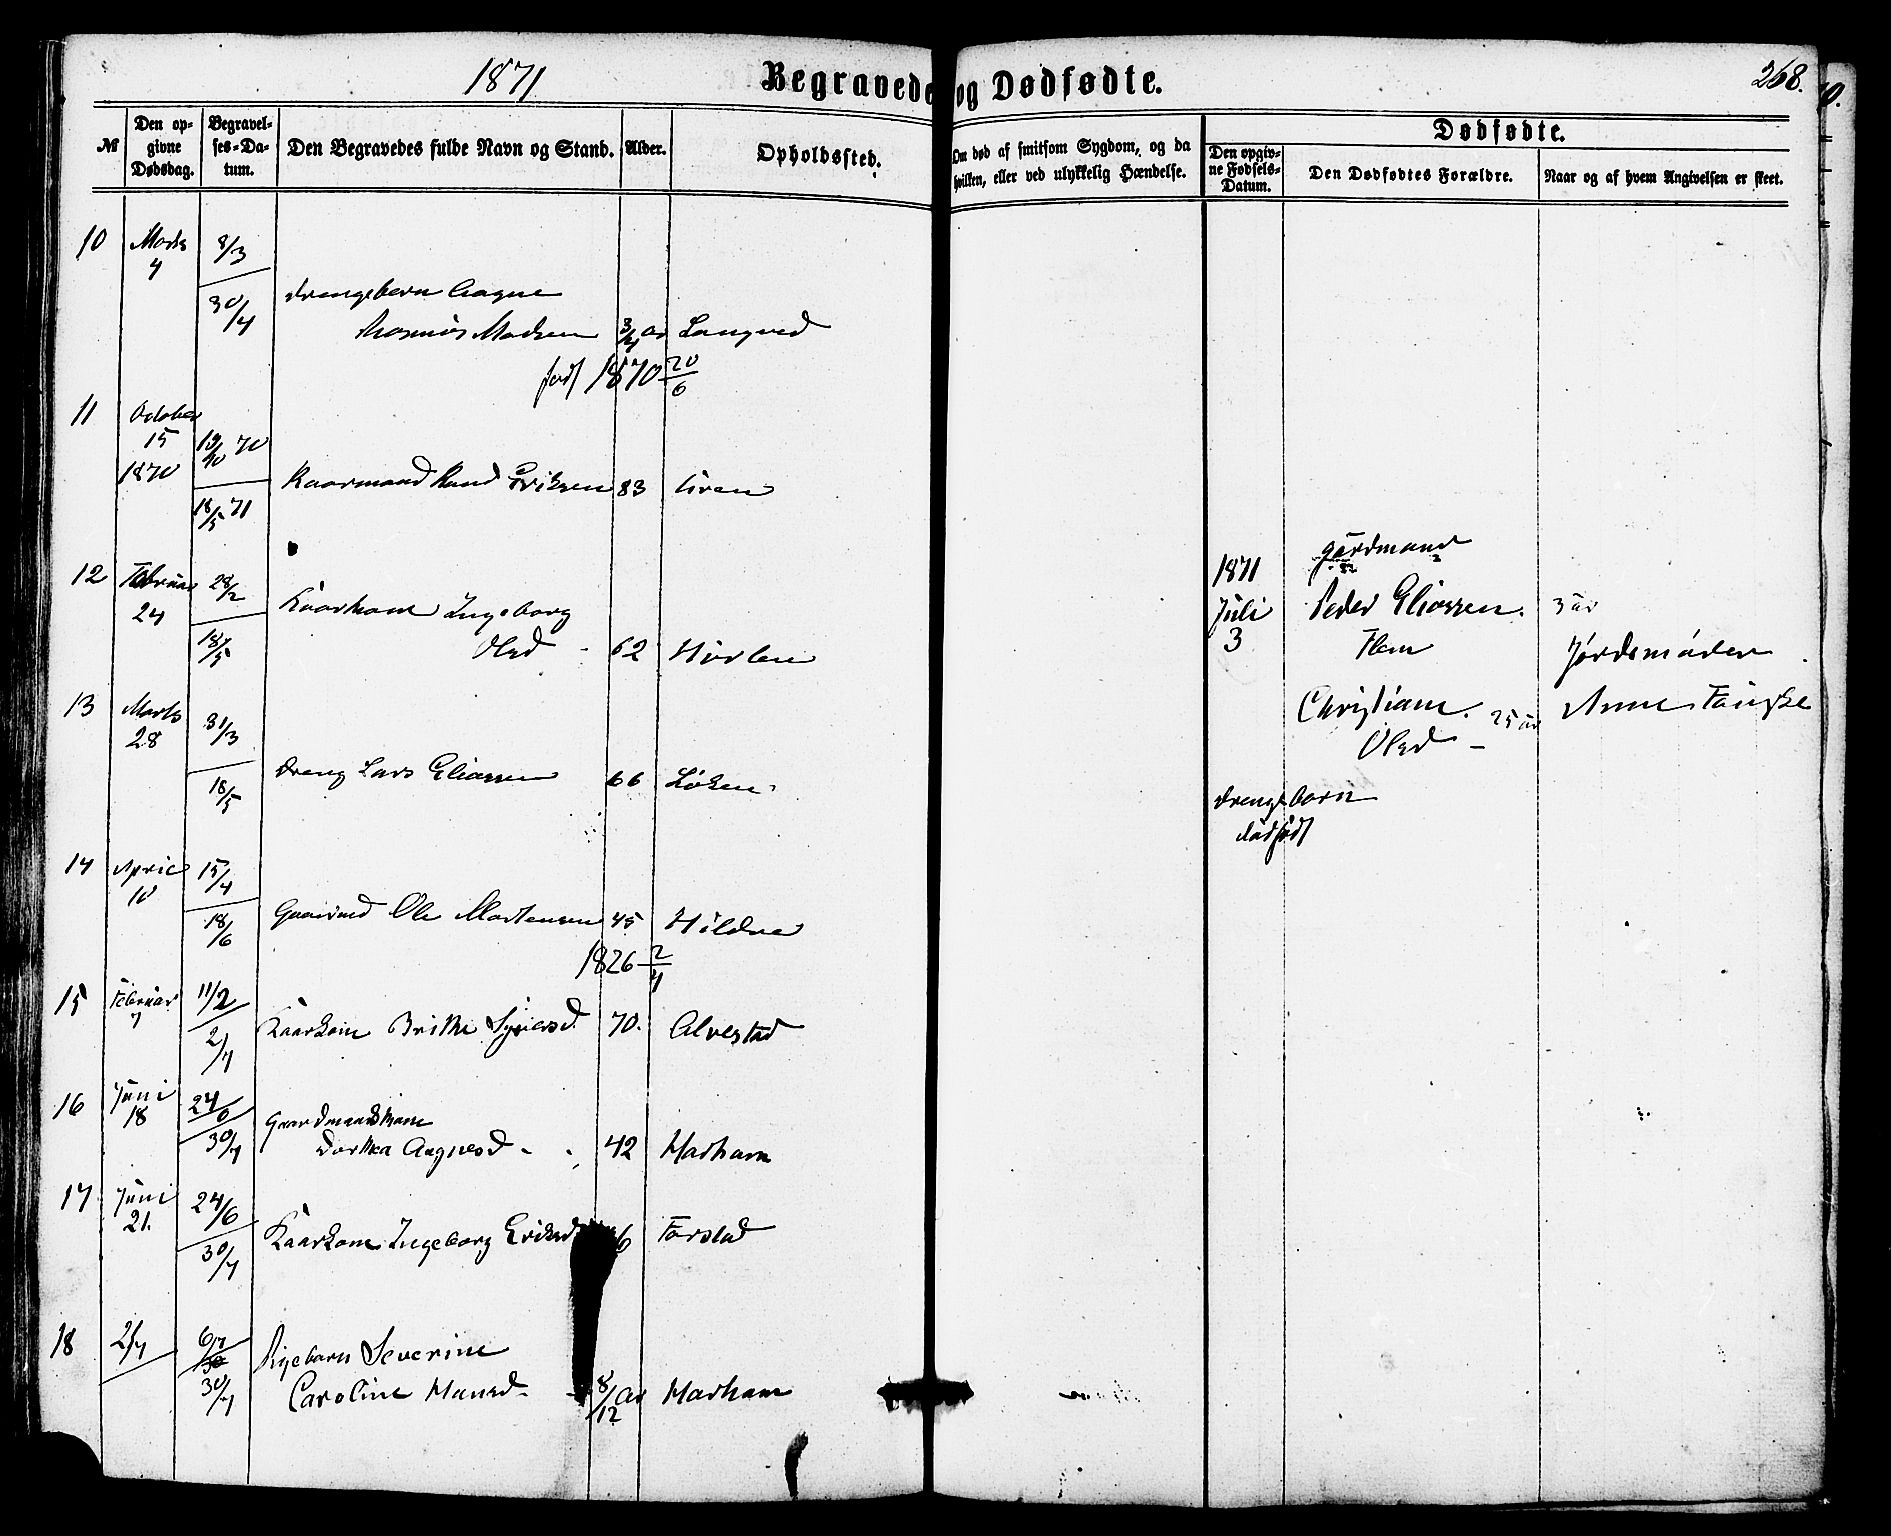 1871
Begravede og Dødfødte.
268.
№
Den op-
givne
Dødsdag.
Begravel-
ses-Da-
tum.
Den Begravedes fulde Navn og Stand.
Alder.
Opholdssted.
Om død af smitsom Sygdom, og da
hvilken, eller ved ulykkelig Hændelse.
Dødfødte.
Den opgiv-
ne Fødsels-
Datum.
Den Dødfødtes Forældre.
Naar og af hvem Angivelsen er skeet.
10 Marts 8/3
4
30/4 Drengebarn Aagne
Rasmus Madsen 3/4 Ar Langved
født 1870 20/6
11 October
15 19/10 70
1870 Kaarmand Knud Eriksen 83 Uren
18/5 71
12 Februar 28/2
24 Kaarkone Ingeborg
18/5 Olsd - 62 Hurlen
13 Marts 31/3
28
18/5 Dreng Lars Eliassen 66 Løken
14 April 15/4
10
18/6 Gaardmd Ole Mortensen 45 Hildre
1826 2/7
15 Februar 11/2
7
2/7 Kaarkone Brithe Syversd. 70. Alvestad
16 Juni 24/6
18 Gaardmandskone
30/7 Dorthea Aagnesd - 42 Harham
17 Juni 24/6
21.
30/7 Kaarkone Ingeborg Eriksd 6 Farstad
18 2/7 6/7
30/7 Pigebarn Severine
Caroline Hansd - 8/12 Ar Harham
gårdmand
1871
Juli Peder Eliassen.
3 Flem Jordemoder
Christiane 25 år Anne Fauske
Olsd -
Drengebarn
dødfødt